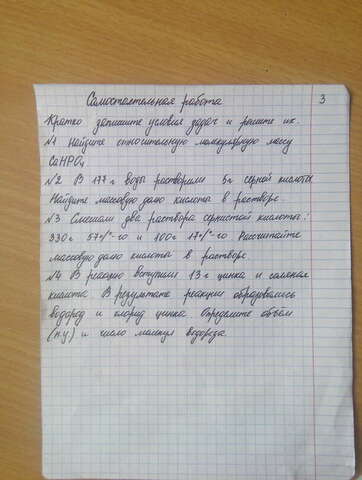 Самостоятельная работа 3
Кратко запишите условия задач и решите их.
№1 Найдите относительную молекулярную массу
CaHPO4
№2 В 177 г воды растворили 5г серной кислоты
Найдите массовую долю кислота в растворе.
№3 Смешали два раствора сернистой кислоты:
330г 57%-го и 100г 17%-го Рассчитайте
массовую долю кислота в растворе
№4 В реакцию вступили 13 г цинка и соляная
кислота В результате реакции образовались
водород и хлорид цинка Определите объём
(н.у) и число молекул водорода